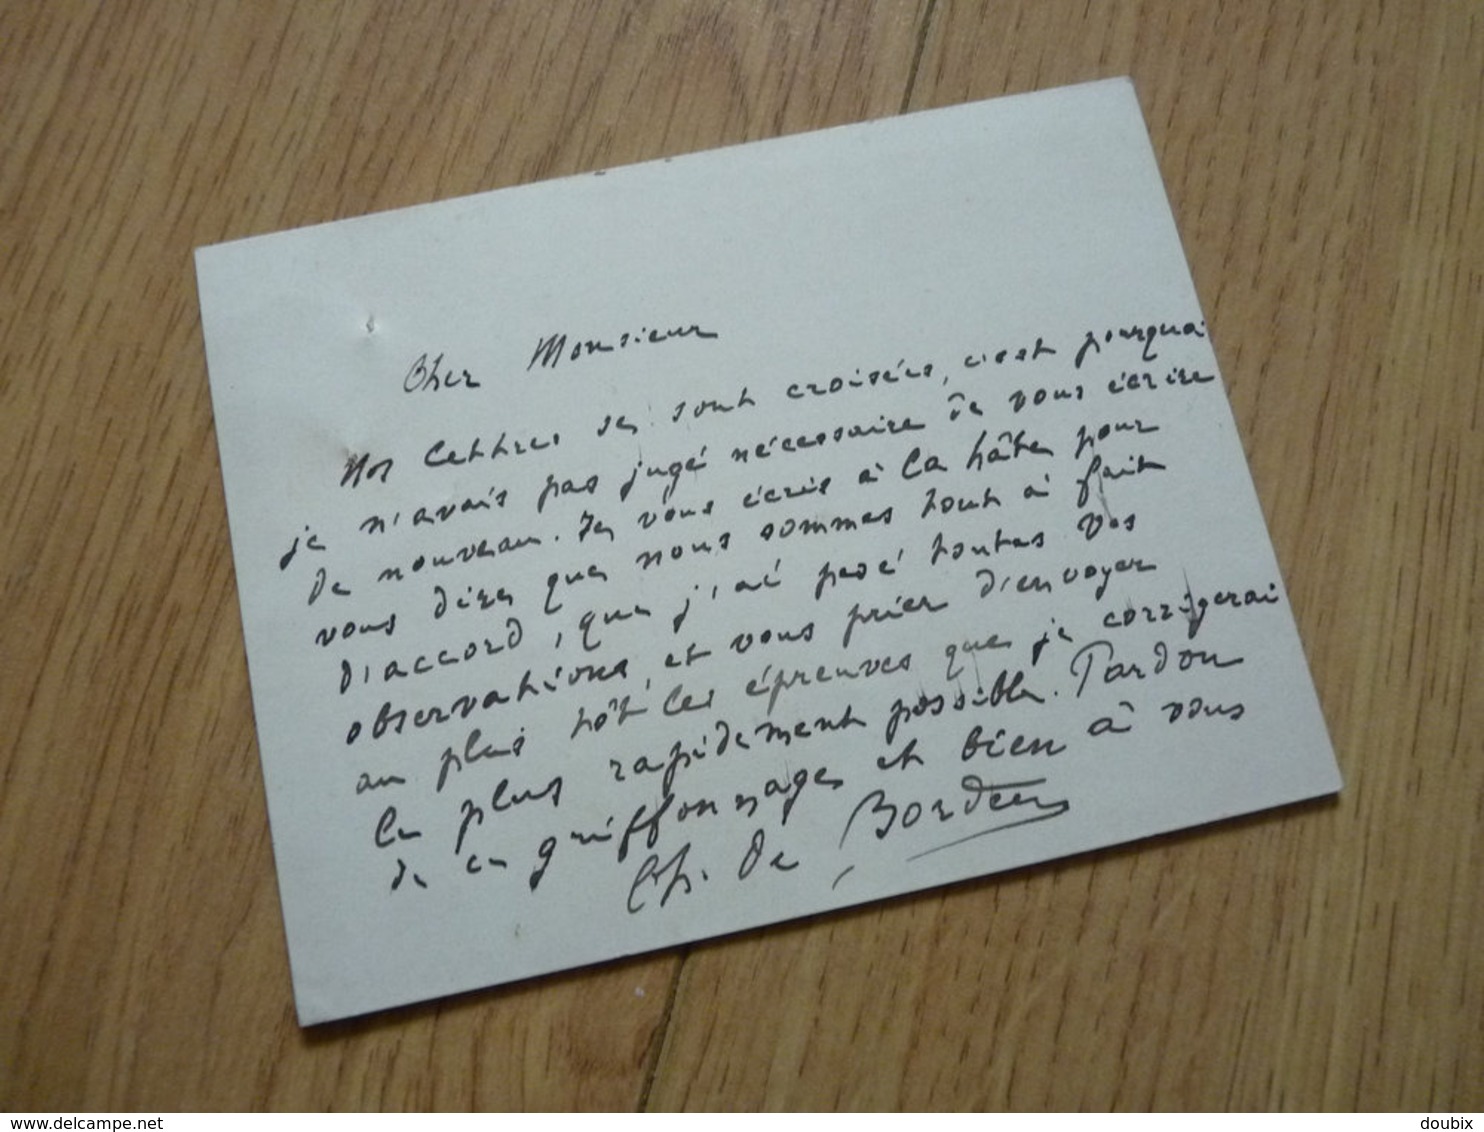 Cher Monsieur
Nos lettres se sont croisées, c'est pourquoi
je n'avais pas jugé nécessaire de vous écrire
de nouveau. Je vous écris à la hâte pour
vous dire que nous sommes tout à fait
d'accord, que j'ai pesé toutes vos
observations, et vous prier d'envoyer
au plus tôt les épreuves que je corrigerai
le plus rapidement possible. Pardon
de ce griffonnage et bien à vous
Ch. de Bordeu
© www.delcampe.net
doubix